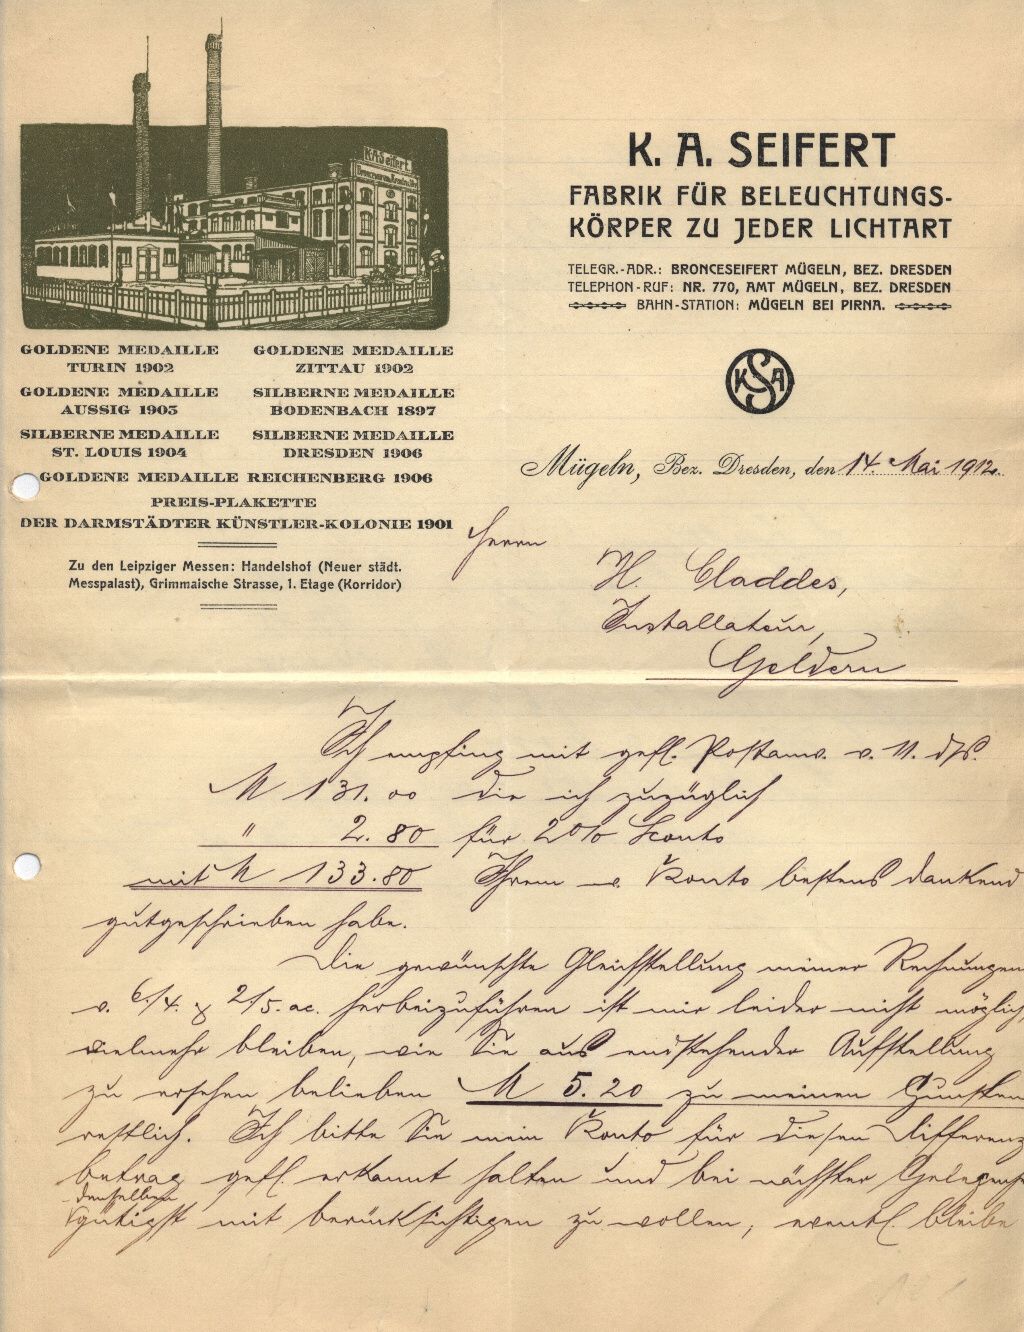 K. A. Seifert
K. A. SEIFERT
FABRIK FÜR BELEUCHTUNGS-
KÖRPER ZU JEDER LICHTART
TELEGR.-ADR.: BRONCESEIFERT MÜGELN, BEZ. DRESDEN
TELEPHON-RUF: NR. 770, AMT MÜGELN, BEZ. DRESDEN
BAHN-STATION: MÜGELN BEI PIRNA.
GOLDENE MEDAILLE TURIN 1902
GOLDENE MEDAILLE ZITTAU 1902
GOLDENE MEDAILLE AUSSIG 1903
SILBERNE MEDAILLE BODENBACH 1897
SILBERNE MEDAILLE ST. LOUIS 1904
SILBERNE MEDAILLE DRESDEN 1906
GOLDENE MEDAILLE REICHENBERG 1906
PREIS-PLAKETTE
DER DARMSTÄDTER KÜNSTLER-KOLONIE 1901
Zu den Leipziger Messen: Handelshof (Neuer städt.
Messpalast), Grimmaische Strasse, 1. Etage (Korridor)
KSA
Mügeln, Bez. Dresden, den 14. Mai 1912.
Herrn
H. Claddes,
Installateur,
Geldern
Ich empfing mit gefl. Postanw. v. 11. ds.
M 131.00 die ich zuzüglich
" 2.80 für 2% Sconto
mit M 133.80 Ihrem w. Konto bestens dankend
gutgeschrieben habe.
Die gewünschte Gleichstellung meiner Rechnungen
v. 6/4. & 2/5. ac. herbeizuführen ist mir leider nicht möglich
vielmehr bleiben, wie Sie aus endstehender Aufstellung
zu ersehen belieben M 5.20 zu meinen Gunsten
restlich. Ich bitte Sie mein Konto für diesen Differenz
betrag gefl. erkannt halten und bei nächster
denselben
gütigst mit berücksichtigen zu wollen, eventl. bleibe